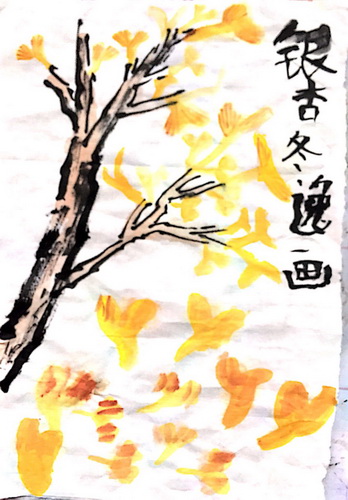 银杏冬逸画